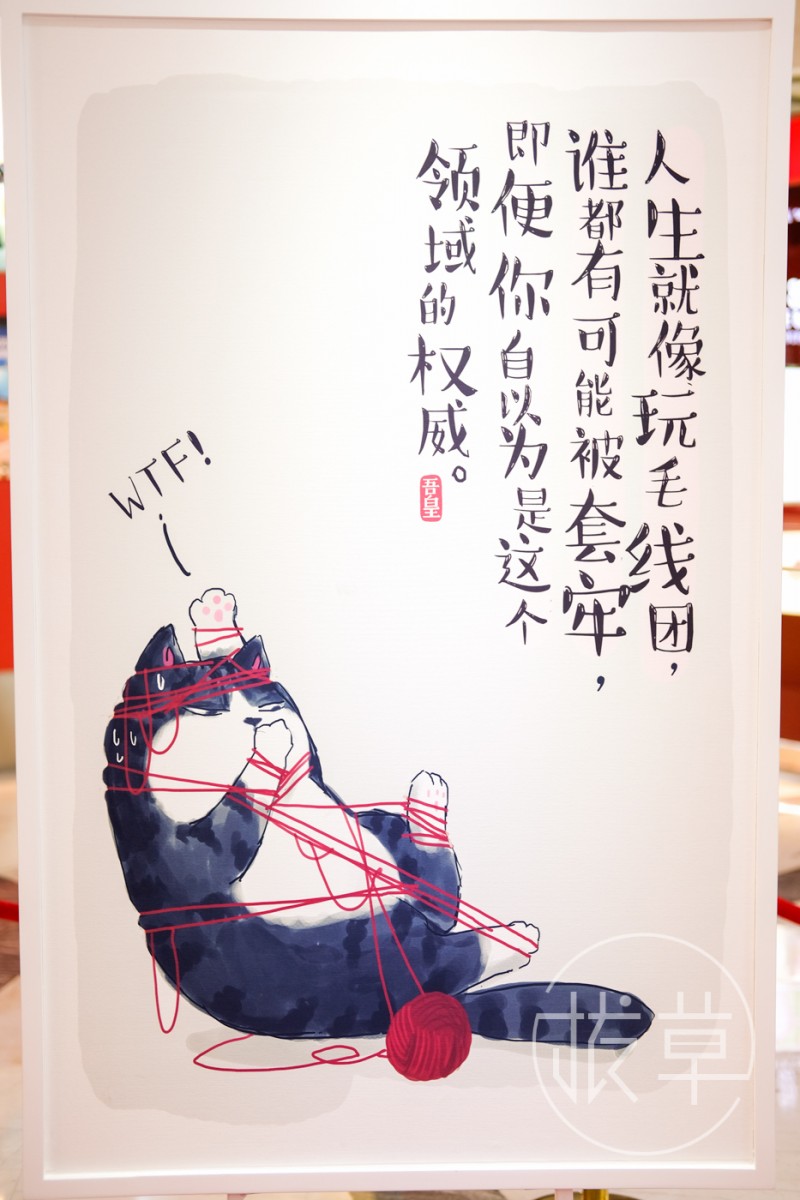 人生就像玩毛线团，
谁都有可能被套牢，
即便你自以为是这个
领域的权威。
吾皇
WTF!
拔草